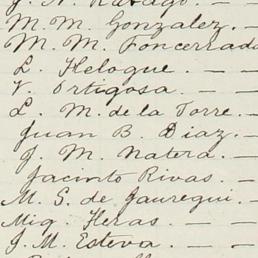 M. M. Gonzalez. — —
M. M. Foncerrada
L. Heloque. — — —
V. Ortigosa. — — —
L. M. de la Torre. —
Juan B. Diaz. — —
J. M. Natera. — —
Jacinto Rivas. — —
M. S. de Jauregui. —
Mig. Heras. — — —
J. M. Esteva. — — —